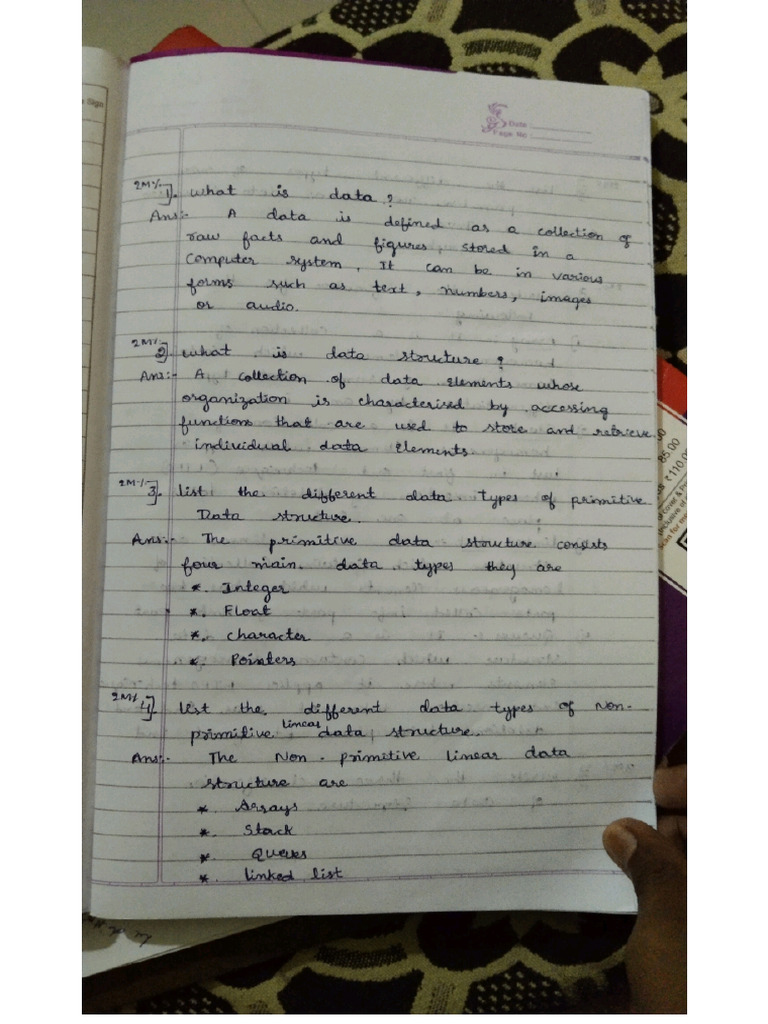 Sign
Date :
Page No :
2M%. 1]. What is data?
Ans:- A data is defined as a collection of
raw facts and figures stored in a
computer system, It can be in various
forms such as text, numbers, images
or audio.
2M%. 2]. what is data structure?
Ans:- A collection of data elements whose
organization is characterised by accessing
functions that are used to store and retrieve
individual data elements
2M%. 3]. List the different data types of primitive
Data structure.
Ans:- The primitive data structure consists
four main data types they are
*. Integer
*. Float
*. character
*. Pointers
2M%. 4]. List the different data types of Non-
primitive linear data structure.
Ans:- The Non-primitive linear data
structure are
*. Arrays
*. Stack
*. Queues
*. linked list
85.00
₹110.00